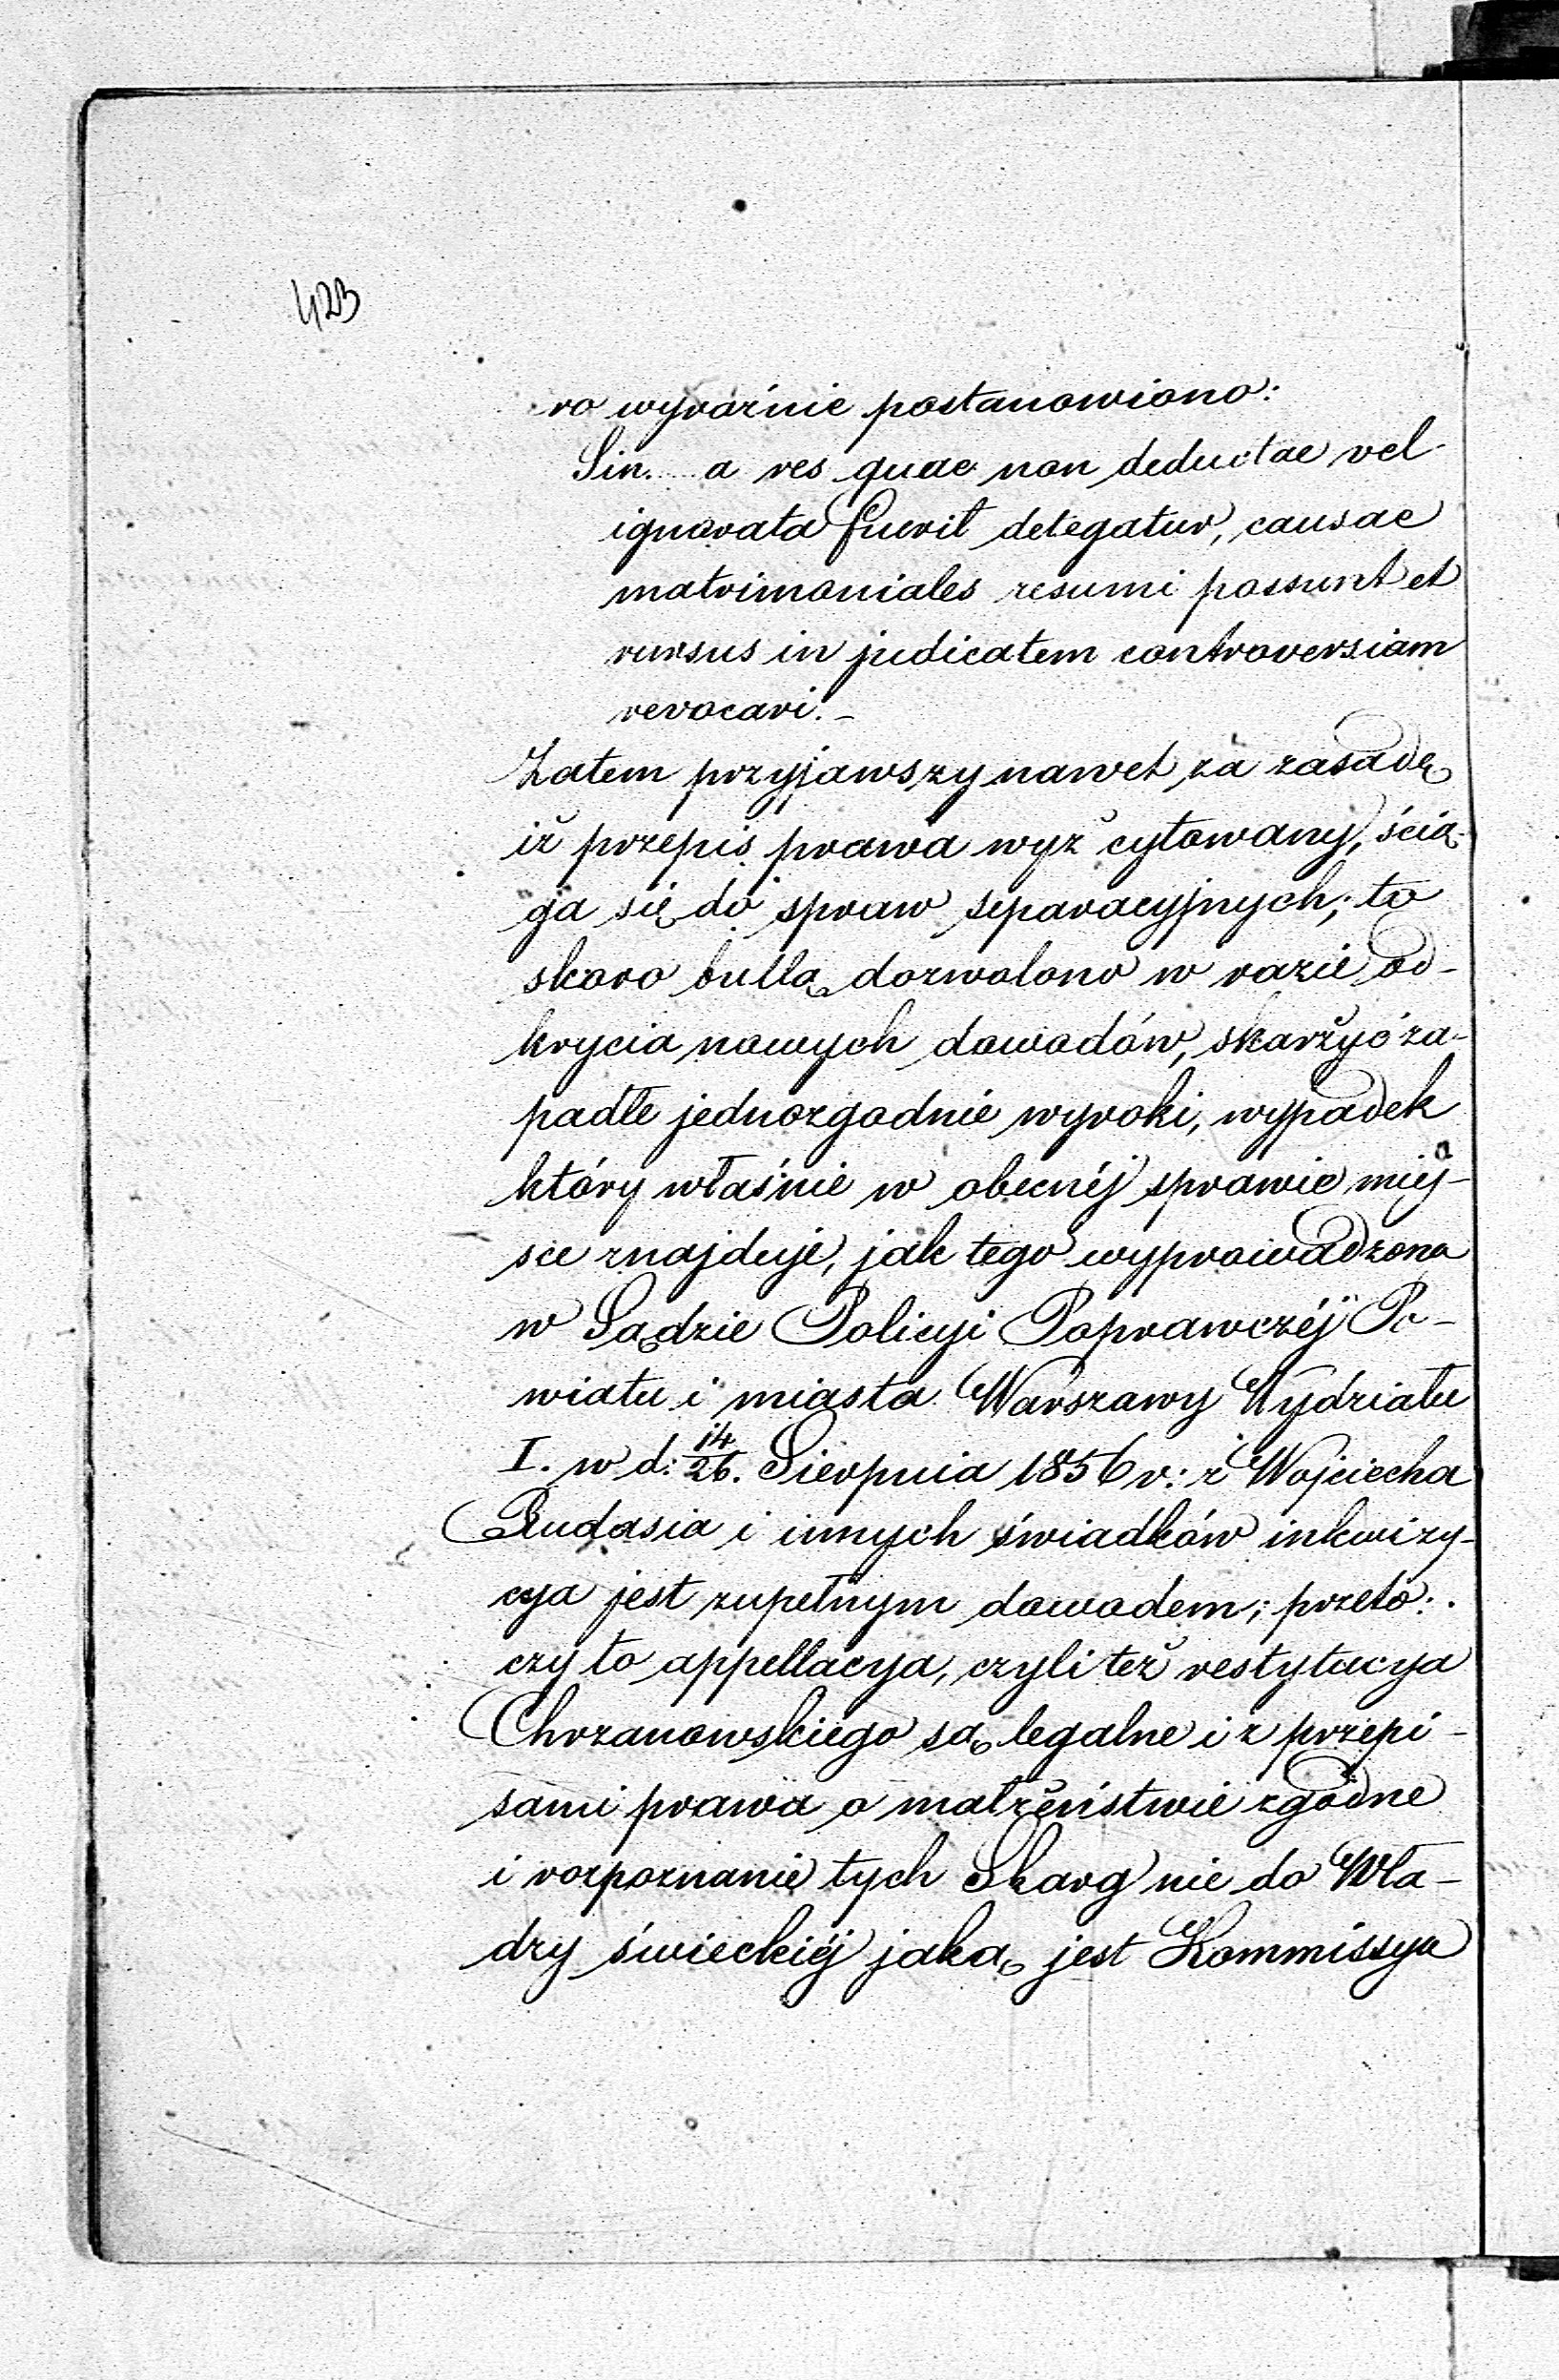 423
ro wyraźnie postanowiono:
Sin. a res quae non deductae vel
ignorata fuerit detegatur, causae
matrimoniales resumi possunt et
rursus in judicatem controversiam
revocari. –
Zatem przyjąwszy nawet za zasadę
iż przepis prawa wyż cytowany, ścią-
ga się do spraw separacyjnych; to
skoro bullą dozwolono w razie od-
krycia nowych dowodów, skarżyć za-
padłe jednozgodnie wyroki, wypadek
który właśnie w obecnéj sprawie miéj-
sce znajduje, jak tego wyprowadzona
w Sądzie Policyi Poprawczéj Po-
wiatu i miasta Warszawy Wydziału
I. w d: 14/26. Sierpnia 1856 r: z Wojciecha
Rudasia i innych świadków inkwizy-
cya jest zupełnym dowodem; przeto:
czy to appellacya, czyli też restytucya
Chrzanowskiego są legalne i z przepi-
sami prawa o małżeństwie zgodne
i rozpoznanie tych Skarg nie do Wła-
dzy świeckiéj jaką jest Kommissya